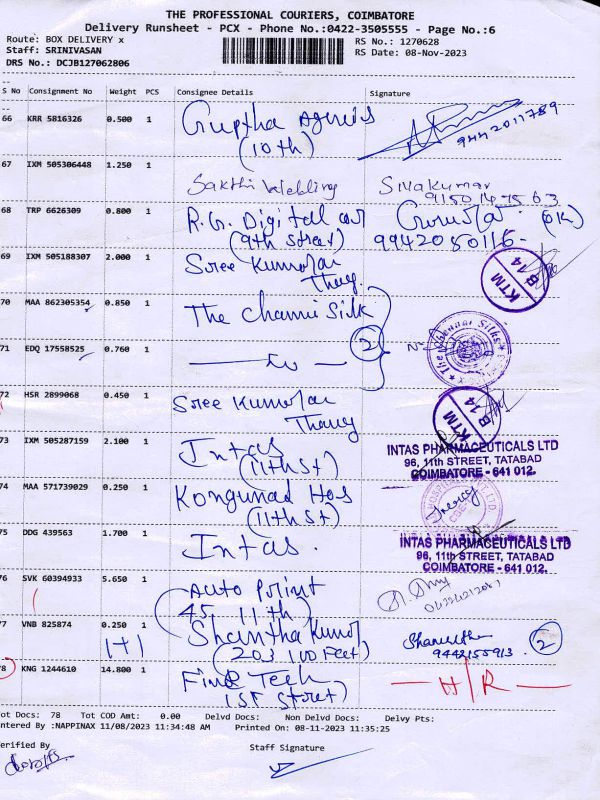 THE PROFESSIONAL COURIERS, COIMBATORE
Delivery Runsheet - PCX - Phone No.:0422-3505555 - Page No.:6
Route: BOX DELIVERY x
RS No.: 1270628
Staff: SRINIVASAN
RS Date: 08-Nov-2023
DRS No.: DCJB127062806
S No Consignment No Weight PCS Consignee Details Signature
66 KRR 5816326 0.500 1 Guptha Agencies
(10th)
9442011789
67 IXM 505306448 1.250 1
Sakthi Welding Sivakumar
9150147563
68 TRP 6626309 0.800 1 R.G. Digital (OK)
(9th street) 9942050116
69 IXM 505188307 2.000 1 Sree Kumaran
Thang
KTM B 14
70 MAA 862305354 0.850 1 The Chennai Silk
2
The Chennai Silks
71 EDQ 17558525 0.760 1
72 HSR 2899068 0.450 1 Sree Kumaran
Thang
KTM B 14
73 IXM 505287159 2.100 1 Intas
(11th St)
INTAS PHARMACEUTICALS LTD
96, 11th STREET, TATABAD
COIMBATORE - 641 012.
74 MAA 571739029 0.250 1 Kongunad Hos
(11th St)
75 DDG 439563 1.700 1 Intas.
INTAS PHARMACEUTICALS LTD
96, 11th STREET, TATABAD
COIMBATORE - 641 012.
76 SVK 60394933 5.650 1 Auto Print
45, 11th)
77 VNB 825874 0.250 1 Shantha Kumar
1+1 (203 100 Feet)
9442155913
2
78 KNG 1244610 14.800 1 Fine Tech
1st Street)
H/R
Tot Docs: 78 Tot COD Amt: 0.00 Delvd Docs: Non Delvd Docs: Delvy Pts:
Entered By :NAPPINAX 11/08/2023 11:34:48 AM Printed On: 08-11-2023 11:35:25
Verified By
Staff Signature